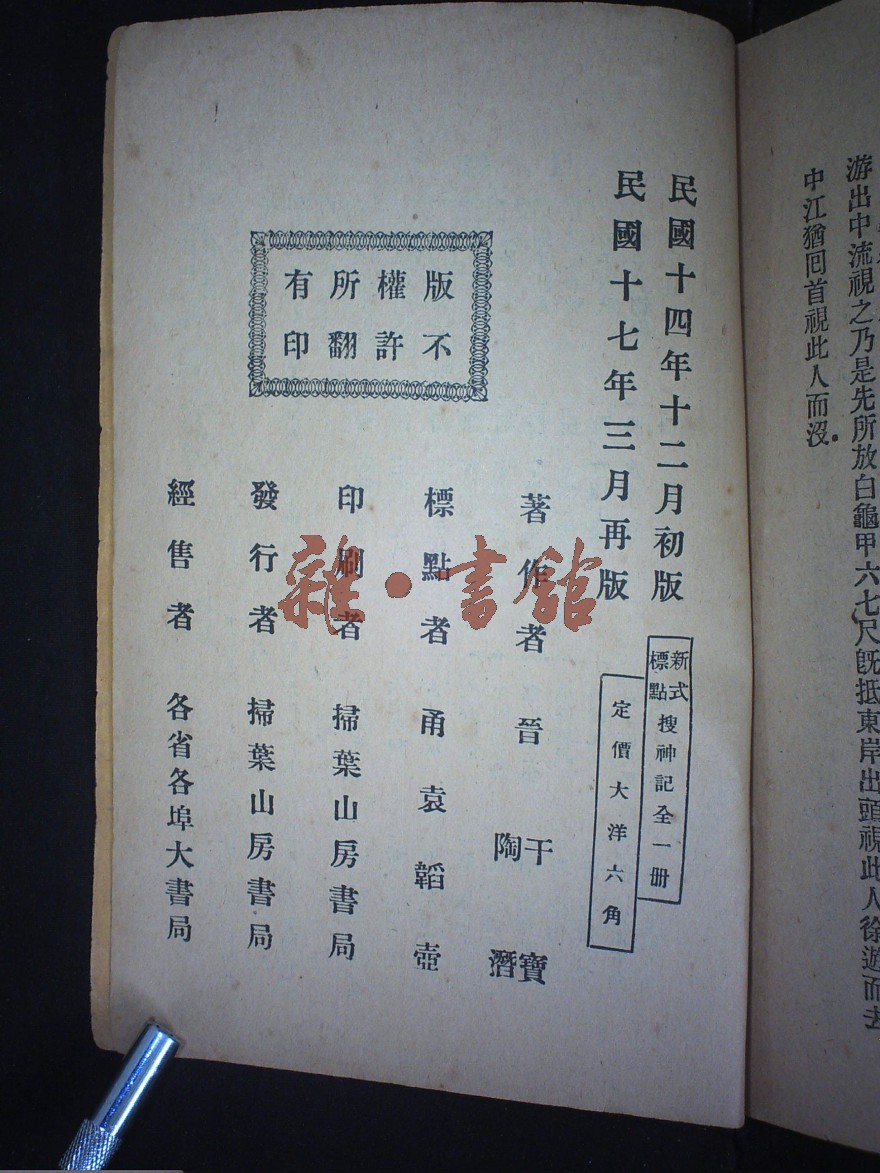 游出中流視之乃是先所放白龜甲六七尺旣抵東岸出頭視此人徐遊而去
中江猶回首視此人而沒。
民國十四年十二月初版
民國十七年三月再版
新式標點搜神記全一册
定價大洋六角
版權所有
不許翻印
著作者 晉 干寶 陶潛
標點者 甬袁韜壺
印刷者 掃葉山房書局
發行者 掃葉山房書局
經售者 各省各埠大書局
雜·書館